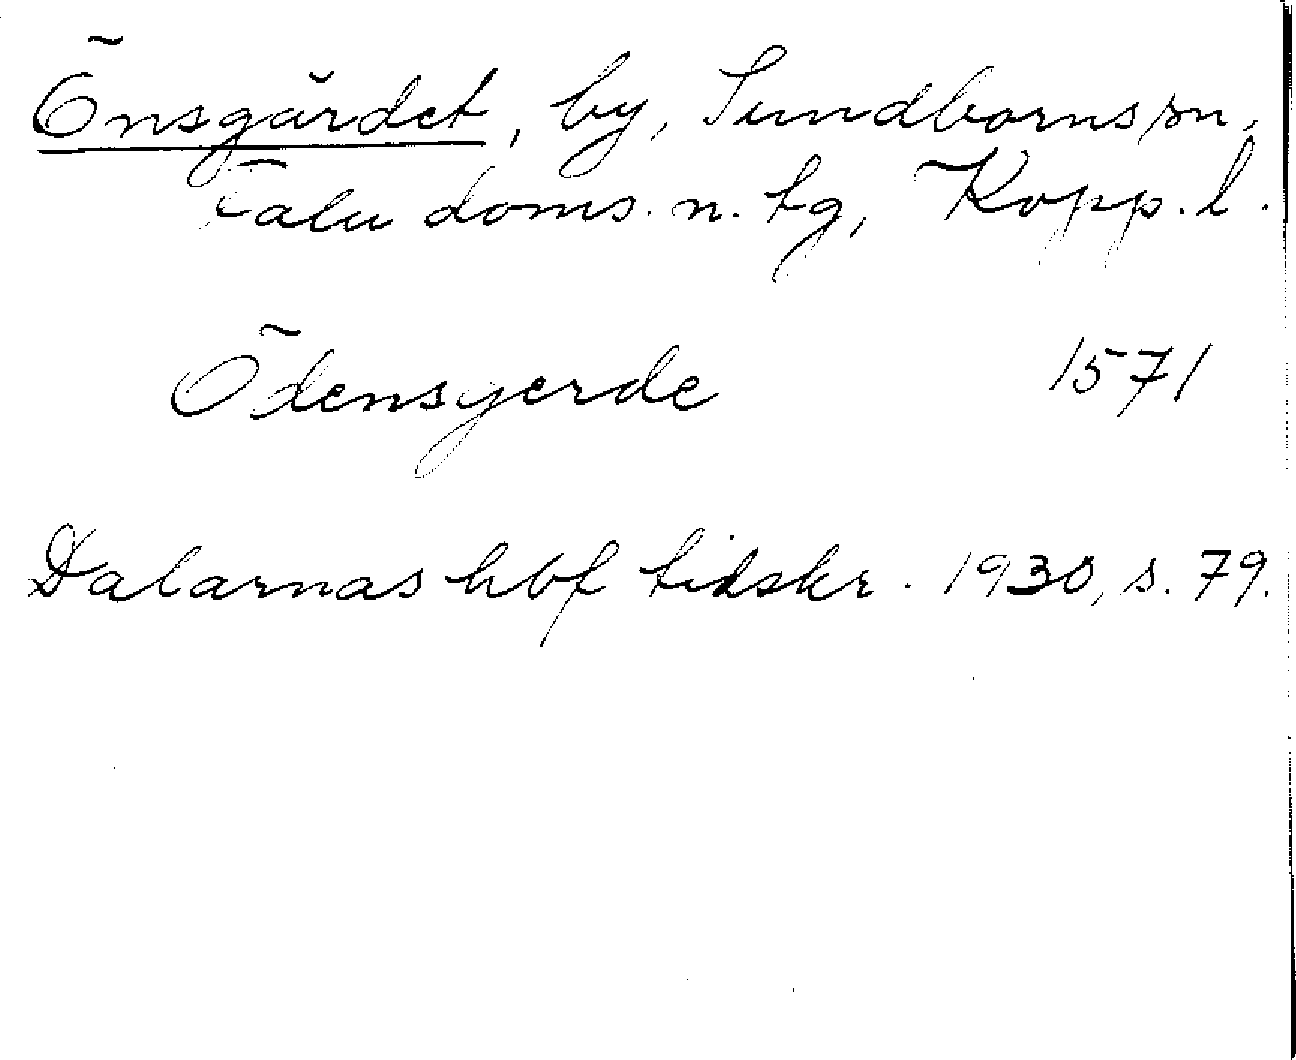 Önsgärdet, by, Sundborns sn,
Falu doms. n. tg, Kopp. l.
Ödensgerde 1571
Dalarnas hbf tidskr. 1930, s. 79.